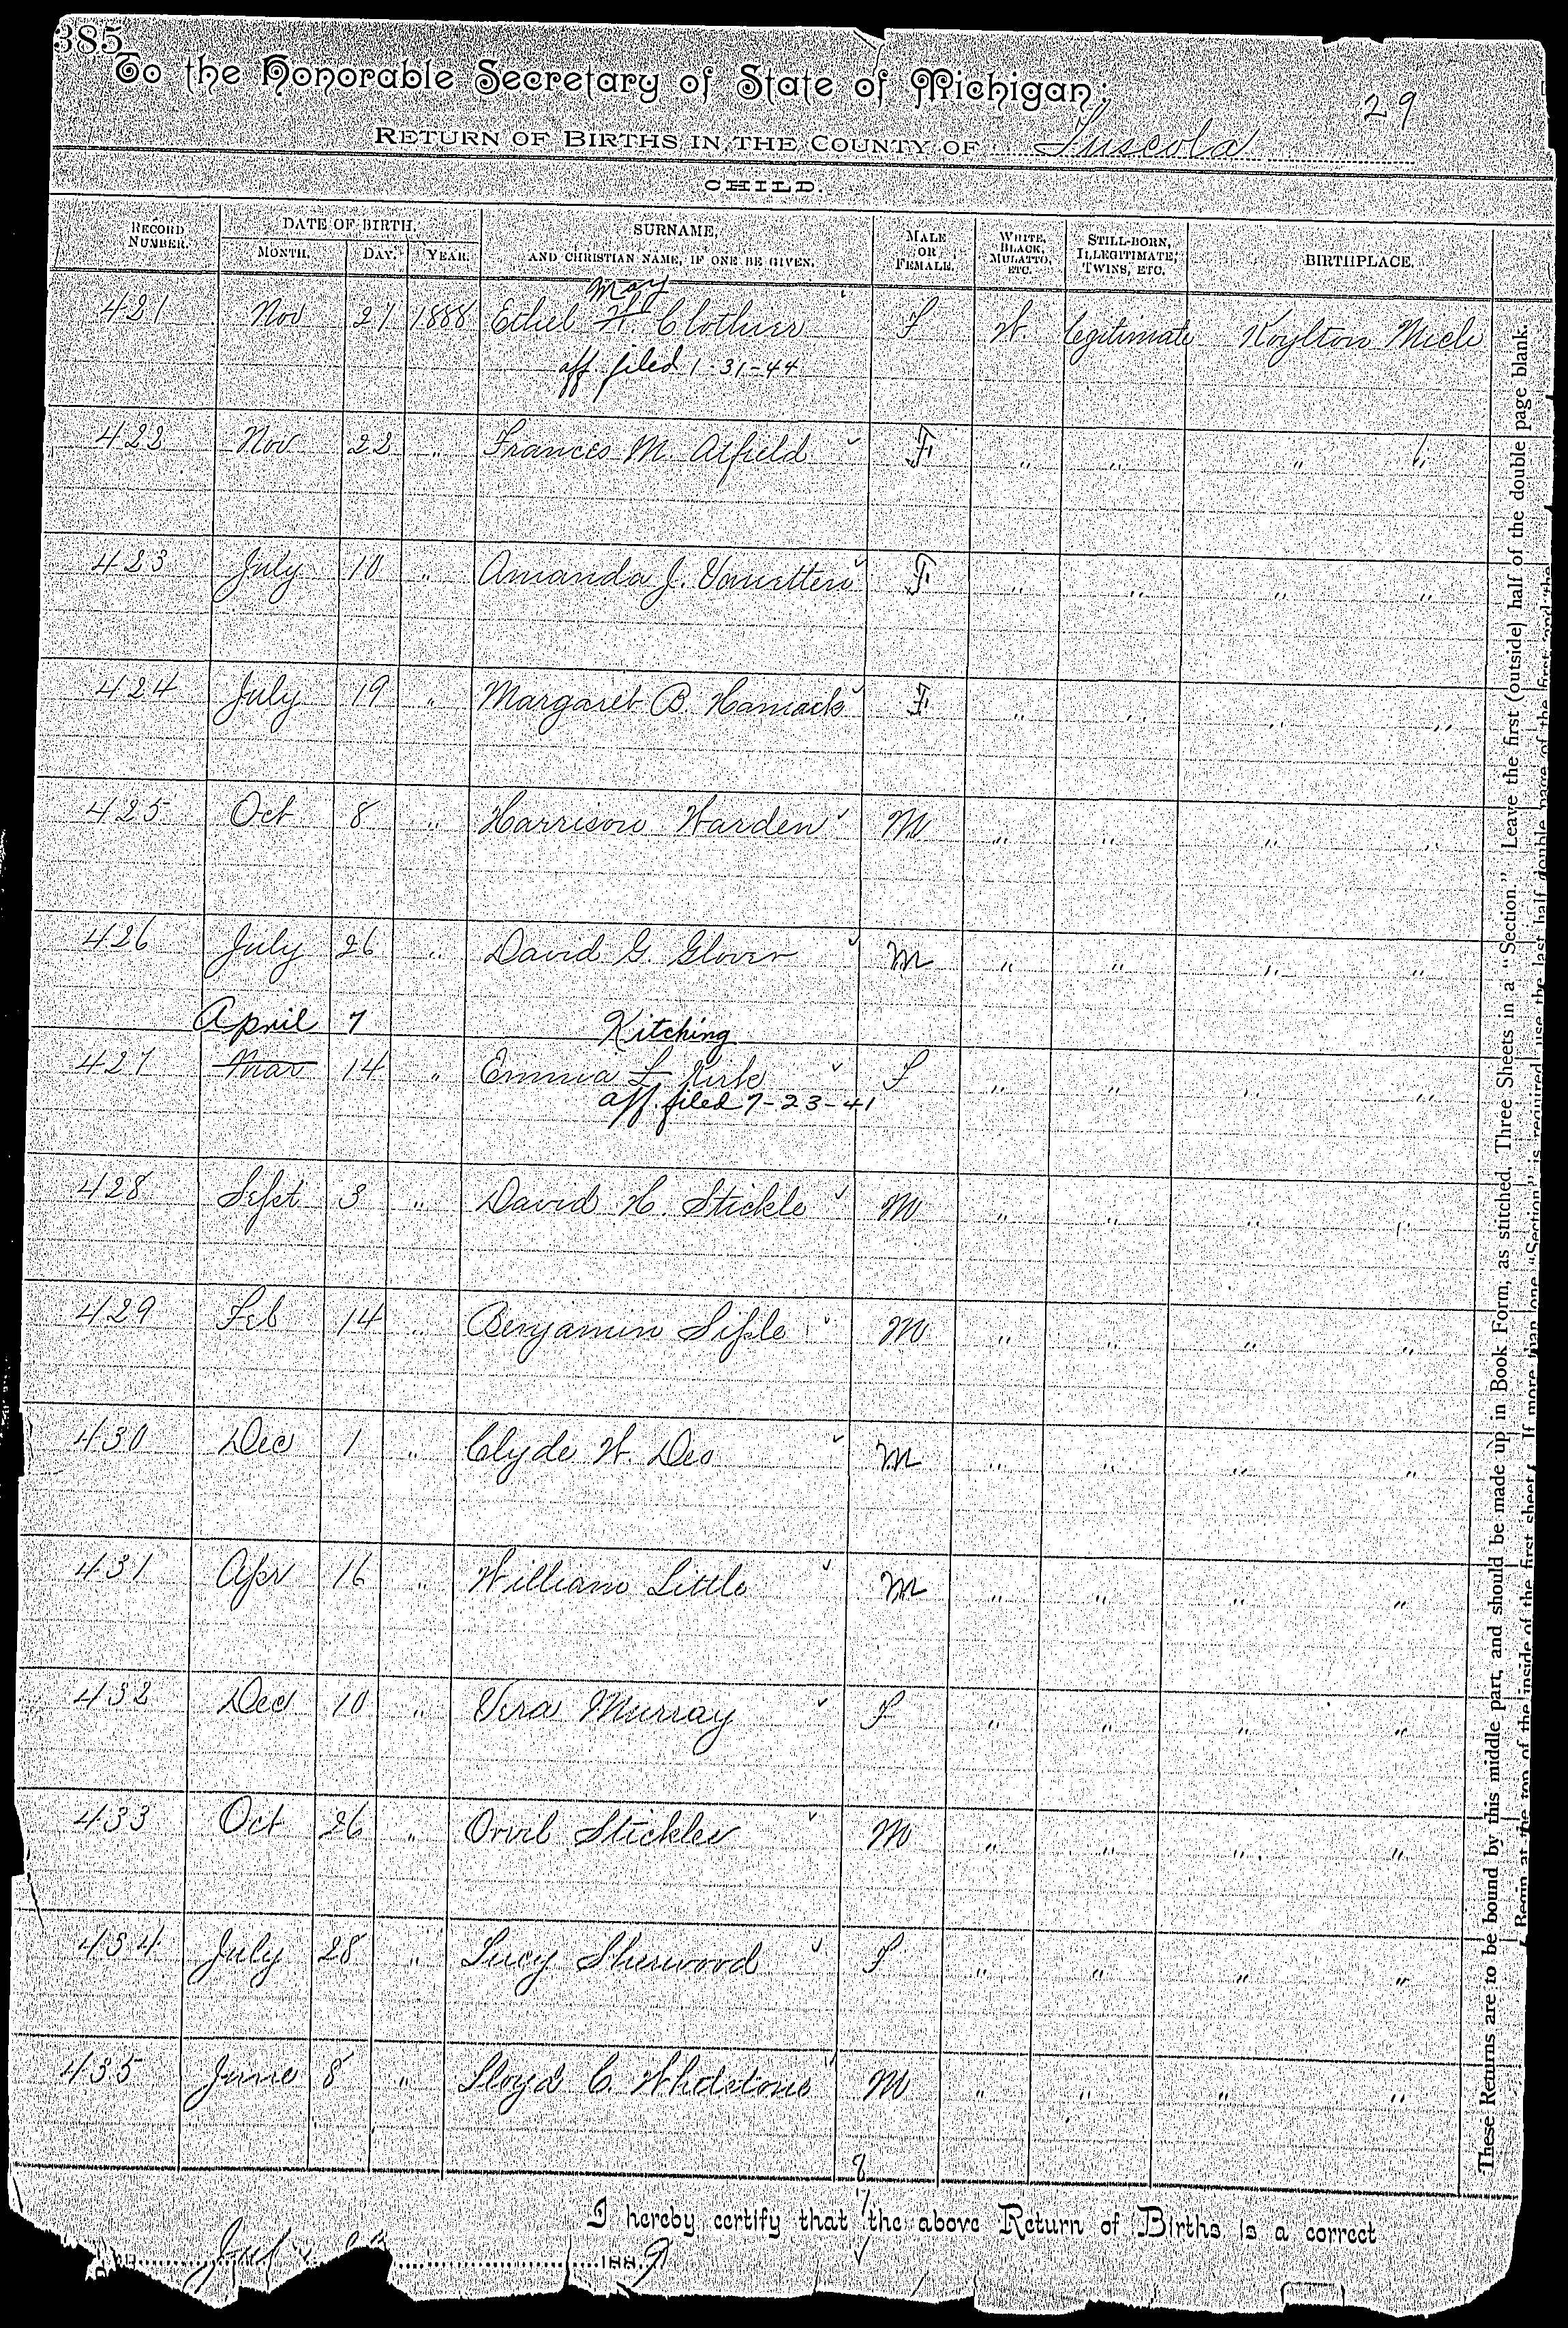 385
To the Honorable Secretary of State of Michigan:
29
RETURN OF BIRTHS IN THE COUNTY OF Tuscola
CHILD.
RECORD NUMBER. DATE OF BIRTH. MONTH. DAY. YEAR. SURNAME, AND CHRISTIAN NAME, IF ONE BE GIVEN. MALE OR FEMALE. WHITE, BLACK, MULATTO, ETC. STILL-BORN, ILLEGITIMATE, TWINS, ETC. BIRTHPLACE.
May
421 Nov 27 1888 Ethel H. Clothier F W. legitimate Koylton Mich
aff. filed 1-31-44
422 Nov 22 " Frances M. Atfield F. " " " "
423 July 10 " Amanda J. Vanetten F. " " " "
424 July 19 " Margaret B. Hamack F. " " " "
425 Oct 8 " Harrison Warden M " " " "
426 July 26 " David G. Glover M " " " "
April 7 Kitching
427 Mar 14 " Emma L Kirk F " " " "
aff. filed 7-23-41
428 Sept 3 " David H. Stickle M " " " "
429 Feb 14 " Benjamin Siple M " " " "
430 Dec 1 " Clyde W. Deo M " " " "
431 Apr 16 " William Little M " " " "
432 Dec 10 " Vera Murray F " " " "
433 Oct 26 " Orvil Stickles M " " " "
434 July 28 " Lucy Sherwood F " " " "
435 June 8 " Lloyd C. Whetstone M " " " "
8
7
I hereby certify that the above Return of Births is a correct
188 9
These Returns are to be bound by this middle part, and should be made up in Book Form, as stitched, Three Sheets in a "Section." Leave the first (outside) half of the double page blank.
Begin at the top of the inside of the first sheet. If more than one "Section" is required use the last half double page of the first and the